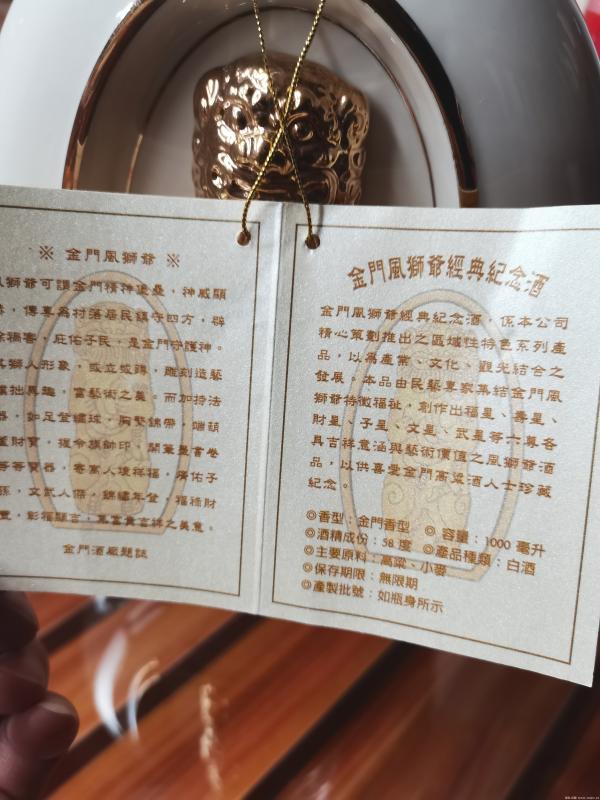 ※ 金門風獅爺 ※
獅爺可謂金門精神堡壘，神威顯
，傳專為村落居民鎮守四方，辟
除禍害，庇佑子民，是金門守護神。
其獅人形象，或立或蹲，雕刻造藝
樸拙具趣，富藝術之美。而加持法
器，如足登繡球、胸繫錦帶、端葫
財寶、擁令旗帥印、
等寶器，寄寓人埈祥福，廣佑子
孫，文武人傑，錦繡年登，福祿財
豐，彰福顯吉，集富貴吉祥之美意。
金門酒廠題誌
金門風獅爺經典紀念酒
金門風獅爺經典紀念酒，係本公司
精心策劃推出之區域性特色系列產
品，以為產業、文化、觀光結合之
發展。本品由民藝專家集結金門風
獅爺特徵福祉，創作出福星、壽星、
財星、子星、文星、武星等六尊各
具吉祥意涵與藝術價值之風獅爺酒
品，以供喜愛金門高粱酒人士珍藏
紀念。
◎香型：金門香型 ◎容量：1000 毫升
◎酒精成份：58 度 ◎產品種類：白酒
◎主要原料：高粱、小麥
◎保存期限：無限期
◎產製批號：如瓶身所示